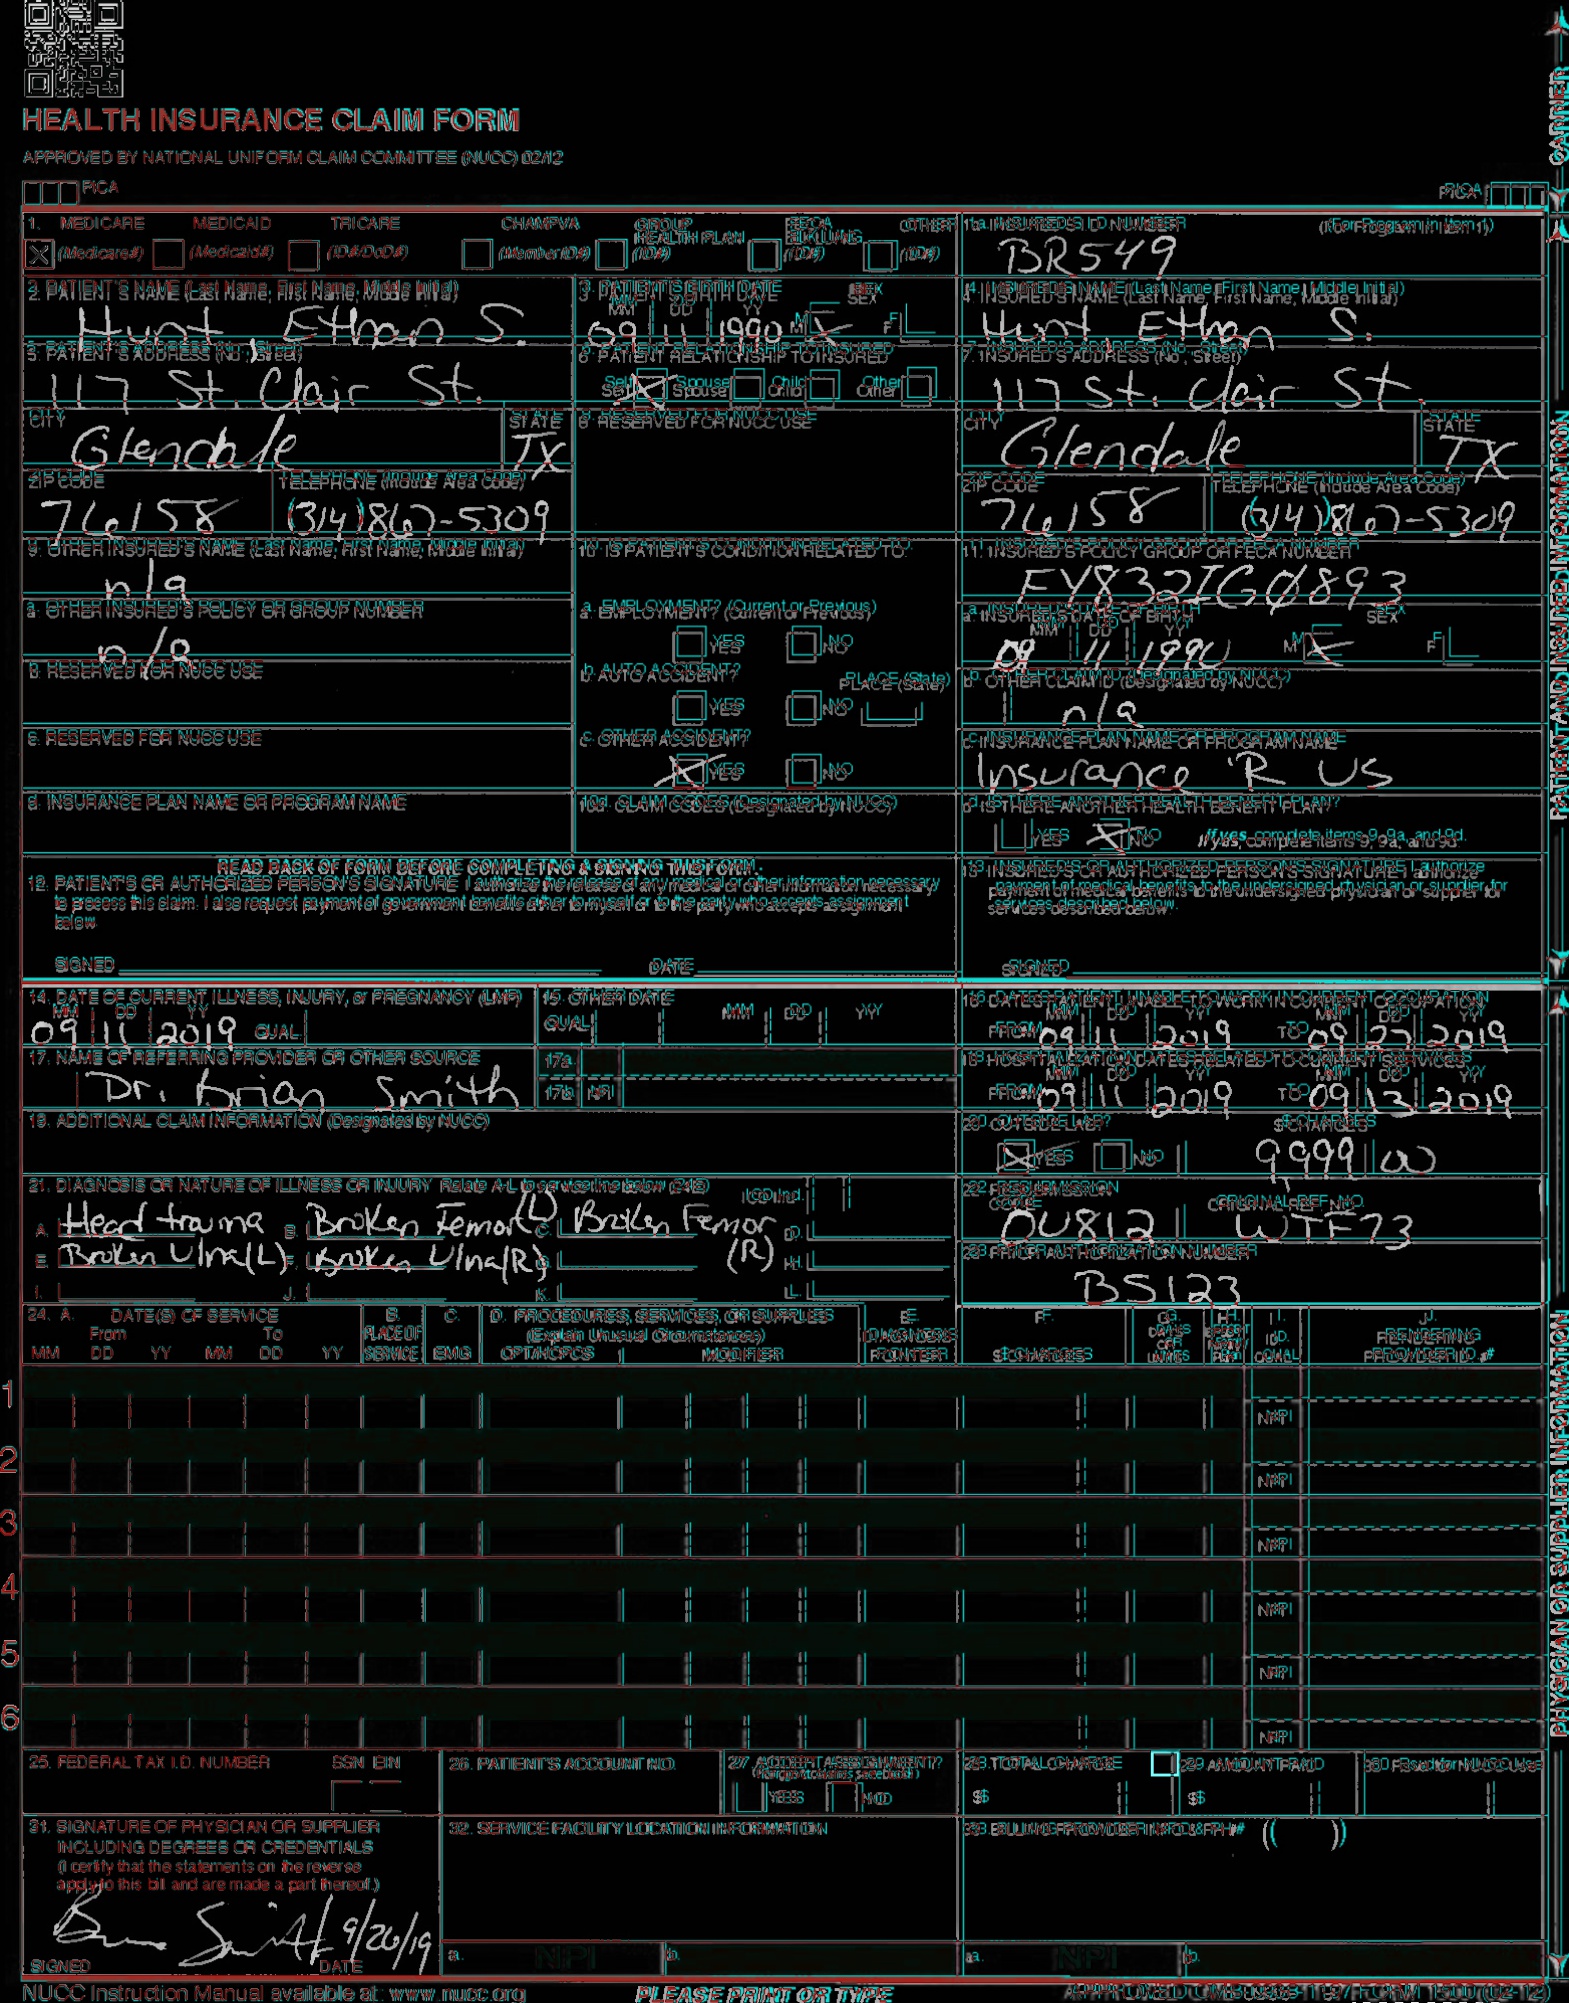 HEALTH INSURANCE CLAIM FORM
APPROVED BY NATIONAL UNIFORM CLAIM COMMITTEE (NUCC) 02/12
PICA PICA
CARRIER
1. MEDICARE MEDICAID TRICARE CHAMPVA GROUP HEALTH PLAN FECA BLK LUNG OTHER
X (Medicare#) (Medicaid#) (ID#/DoD#) (Member ID#) (ID#) (ID#) (ID#)
1a. INSURED'S ID NUMBER (For Program in Item 1)
BR549
2. PATIENT'S NAME (Last Name, First Name, Middle Initial)
Hunt, Ethan S.
3. PATIENT'S BIRTH DATE SEX
MM DD YY
09 11 1990 M X F
4. INSURED'S NAME (Last Name, First Name, Middle Initial)
Hunt Ethan S.
5. PATIENT'S ADDRESS (No., Street)
117 St. Clair St.
6. PATIENT RELATIONSHIP TO INSURED
Self X Spouse Child Other
7. INSURED'S ADDRESS (No., Street)
117 St. Clair St.
CITY STATE
Glendale TX
8. RESERVED FOR NUCC USE
CITY STATE
Glendale TX
ZIP CODE TELEPHONE (Include Area Code)
76158 (314)867-5309
ZIP CODE TELEPHONE (Include Area Code)
76158 (314)867-5309
9. OTHER INSURED'S NAME (Last Name, First Name, Middle Initial)
n/a
10. IS PATIENT'S CONDITION RELATED TO:
11. INSURED'S POLICY GROUP OR FECA NUMBER
FY832IGØ893
a. OTHER INSURED'S POLICY OR GROUP NUMBER
n/a
a. EMPLOYMENT? (Current or Previous)
YES NO
a. INSURED'S DATE OF BIRTH SEX
MM DD YY
09 11 1990 M X F
b. RESERVED FOR NUCC USE
b. AUTO ACCIDENT? PLACE (State)
YES NO
b. OTHER CLAIM ID (Designated by NUCC)
n/a
c. RESERVED FOR NUCC USE
c. OTHER ACCIDENT?
X YES NO
c. INSURANCE PLAN NAME OR PROGRAM NAME
Insurance 'R US
d. INSURANCE PLAN NAME OR PROGRAM NAME
10d. CLAIM CODES (Designated by NUCC)
d. IS THERE ANOTHER HEALTH BENEFIT PLAN?
YES X NO If yes, complete items 9, 9a, and 9d.
READ BACK OF FORM BEFORE COMPLETING & SIGNING THIS FORM.
12. PATIENT'S OR AUTHORIZED PERSON'S SIGNATURE I authorize the release of any medical or other information necessary
to process this claim. I also request payment of government benefits either to myself or to the party who accepts assignment
below.
SIGNED DATE
13. INSURED'S OR AUTHORIZED PERSON'S SIGNATURE I authorize
payment of medical benefits to the undersigned physician or supplier for
services described below.
SIGNED
PATIENT AND INSURED INFORMATION
14. DATE OF CURRENT ILLNESS, INJURY, or PREGNANCY (LMP)
MM DD YY
09 11 2019 QUAL
15. OTHER DATE
QUAL MM DD YY
16. DATES PATIENT UNABLE TO WORK IN CURRENT OCCUPATION
MM DD YY MM DD YY
FROM 09 11 2019 TO 09 27 2019
17. NAME OF REFERRING PROVIDER OR OTHER SOURCE
Dr. Brian Smith
17a.
17b. NPI
18. HOSPITALIZATION DATES RELATED TO CURRENT SERVICES
MM DD YY MM DD YY
FROM 09 11 2019 TO 09 13 2019
19. ADDITIONAL CLAIM INFORMATION (Designated by NUCC)
20. OUTSIDE LAB? $ CHARGES
X YES NO 9999 00
21. DIAGNOSIS OR NATURE OF ILLNESS OR INJURY Relate A-L to service line below (24E) ICD Ind.
A. Head trauma B. Broken Femor (L) C. Broken Femor (R) D.
E. Broken Ulna(L) F. Broken Ulna(R) G. H.
I. J. K. L.
22. RESUBMISSION CODE ORIGINAL REF. NO.
OU812 WTF73
23. PRIOR AUTHORIZATION NUMBER
BS123
24. A. DATE(S) OF SERVICE B. C. D. PROCEDURES, SERVICES, OR SUPPLIES E. F. G. H. I. J.
From To PLACE OF (Explain Unusual Circumstances) DIAGNOSIS DAYS OR UNITS EPSDT Family Plan ID. RENDERING
MM DD YY MM DD YY SERVICE EMG CPT/HCPCS MODIFIER POINTER $ CHARGES QUAL PROVIDER ID. #
1 NPI
2 NPI
3 NPI
4 NPI
5 NPI
6 NPI
PHYSICIAN OR SUPPLIER INFORMATION
25. FEDERAL TAX I.D. NUMBER SSN EIN
26. PATIENT'S ACCOUNT NO.
27. ACCEPT ASSIGNMENT?
(For govt. claims, see back)
YES NO
28. TOTAL CHARGE
$
29. AMOUNT PAID
$
30. Rsvd for NUCC Use
31. SIGNATURE OF PHYSICIAN OR SUPPLIER
INCLUDING DEGREES OR CREDENTIALS
(I certify that the statements on the reverse
apply to this bill and are made a part thereof.)
9/26/19
SIGNED DATE
32. SERVICE FACILITY LOCATION INFORMATION
a. NPI b.
33. BILLING PROVIDER INFO & PH # ( )
a. NPI b.
NUCC Instruction Manual available at: www.nucc.org
PLEASE PRINT OR TYPE
APPROVED OMB-0938-1197 FORM 1500 (02-12)